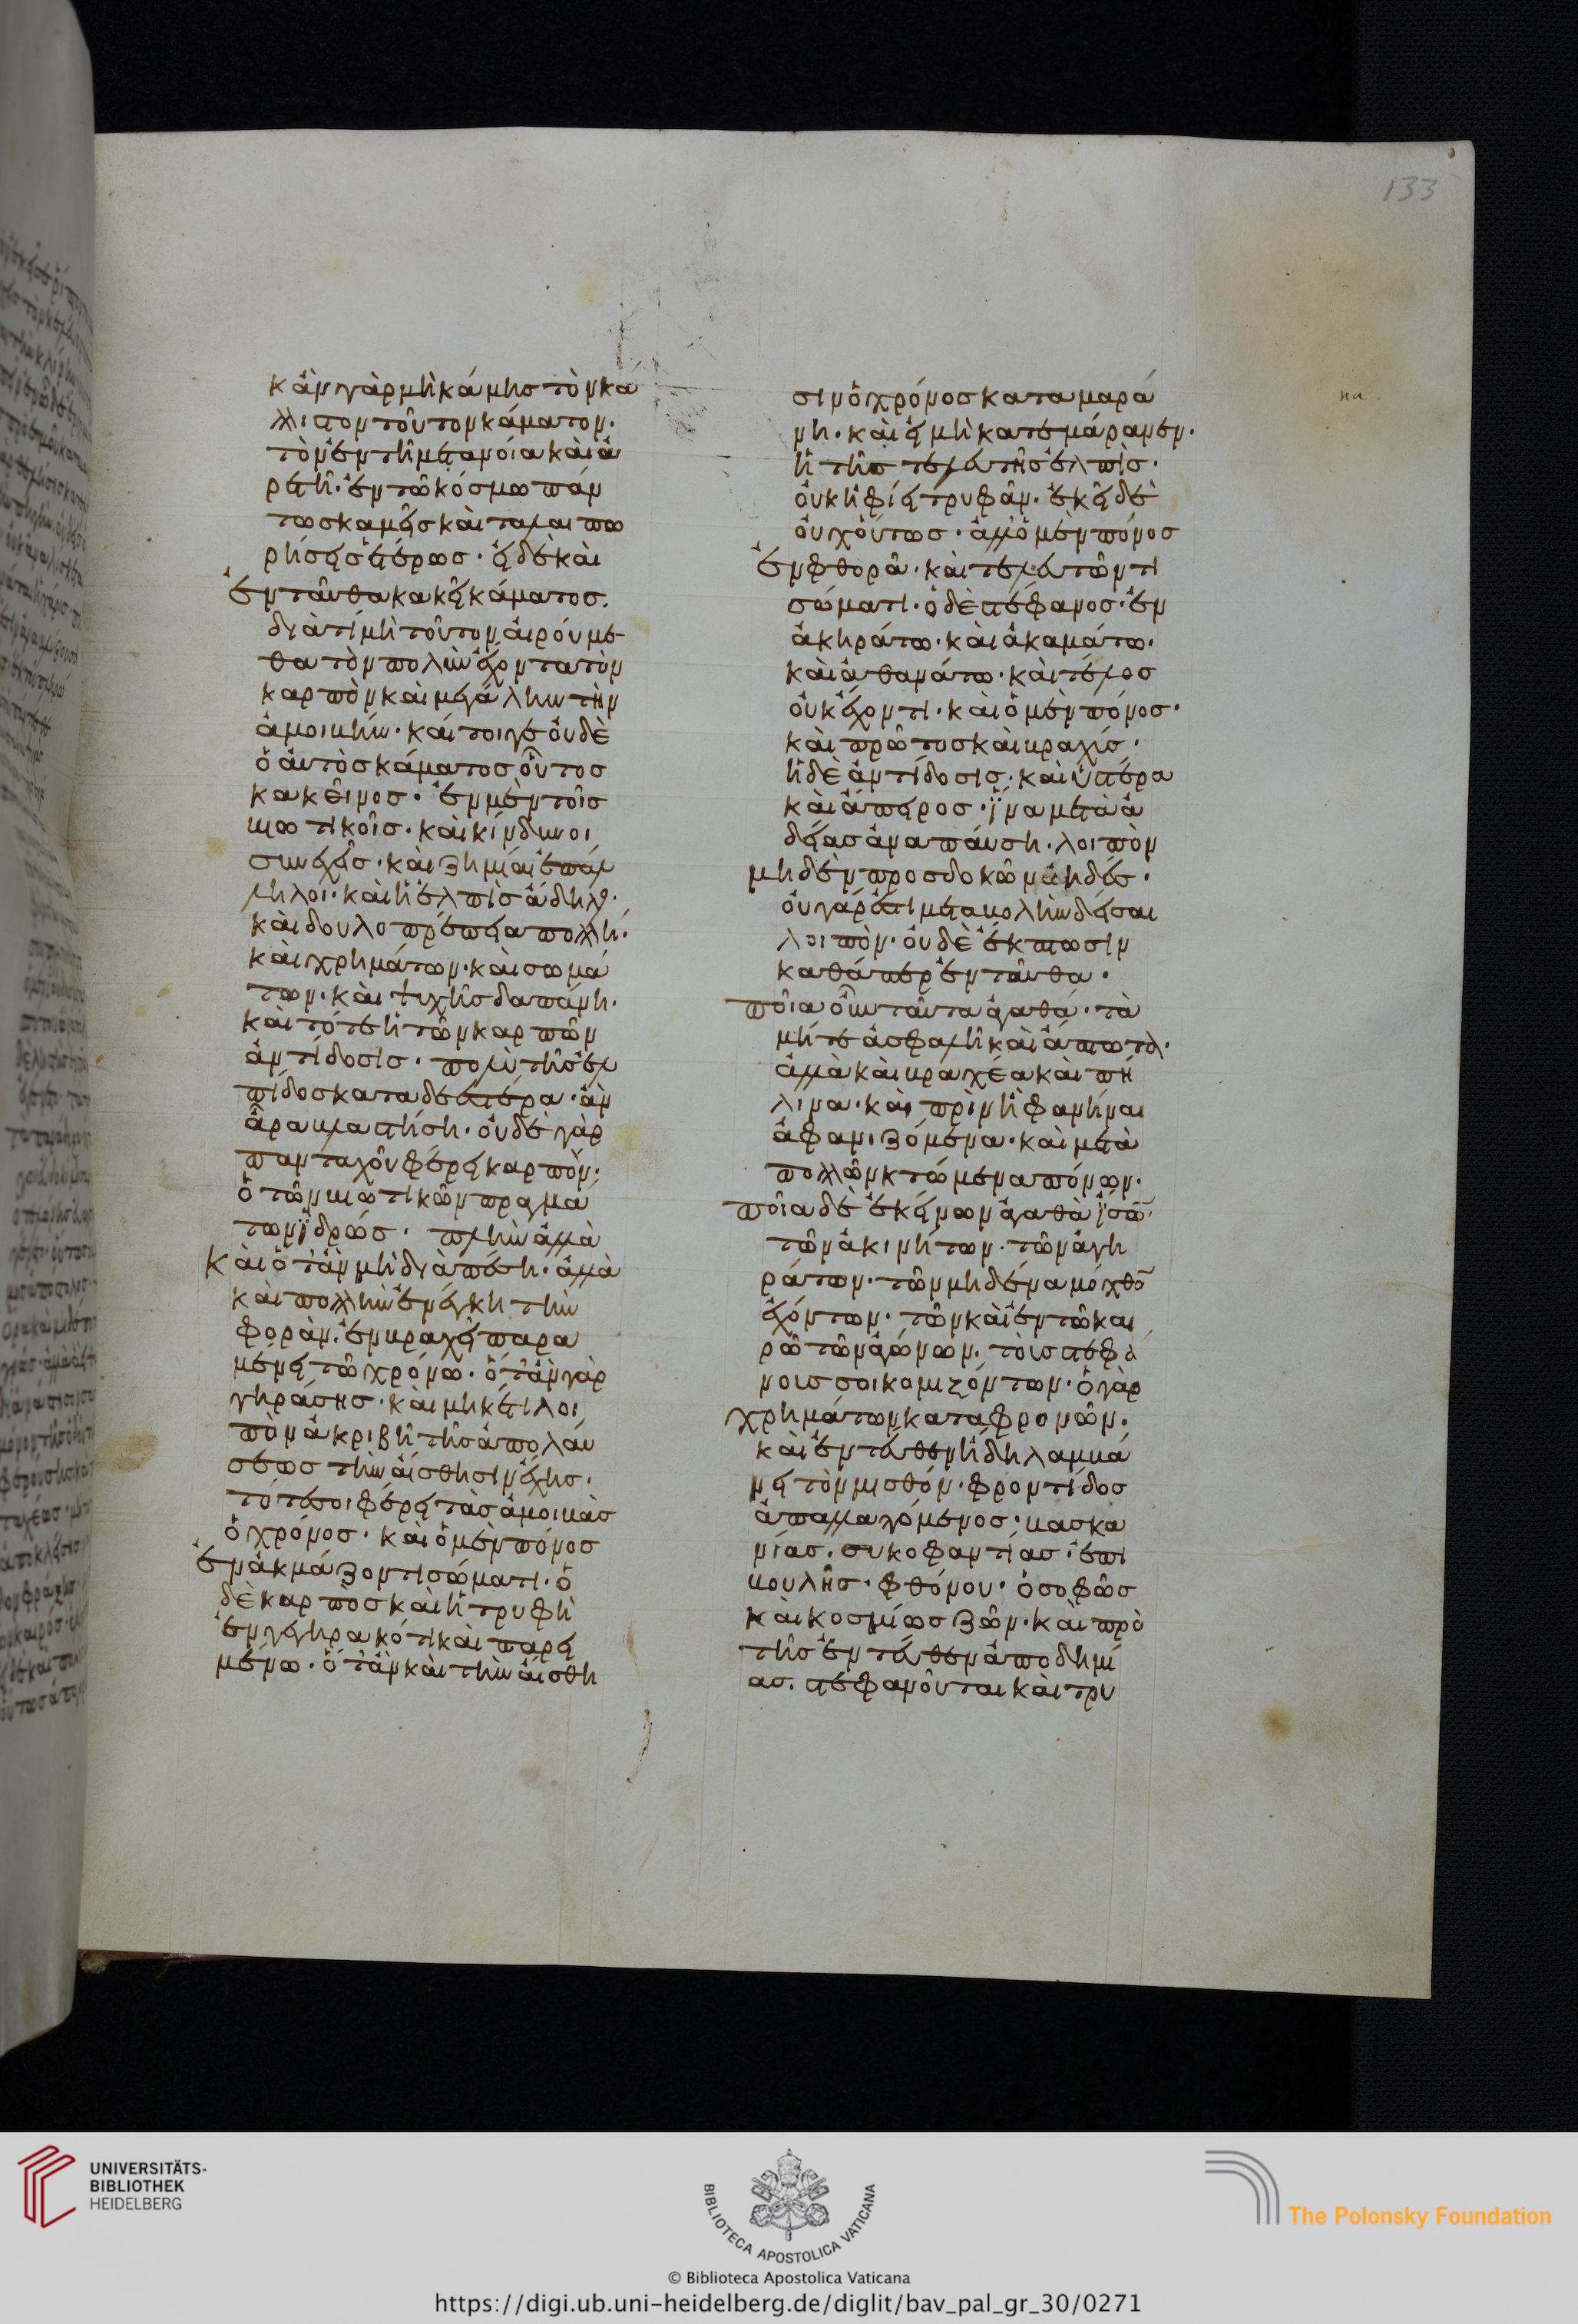 133
κἂν γὰρ μὴ κάμῃς τὸν κά
λλιστον τοῦτον κάματον.
τὸν ἐν τῆ μετανοία καὶ ἀ
ρετῆ. ἐν τῶ κόσμω πάν
τως καμεῖς καὶ ταλαιπω
ρήσεις ἑτέρως. εἰ δὲ καὶ
ἐνταῦθα κακεῖ κάματος.
διατί μὴ τοῦτον αἱρούμε
θα τὸν πολὺν ἔχοντα τὸν
καρπὸν καὶ μεγάλην τὴν
ἀμοιβήν. καί τοιγε οὐδὲ
ὁ αὐτὸς κάματος οὗτος
κακεῖνος. ἐν μὲν τοῖς
βιωτικοῖς. καὶ κίνδυνοι
συνεχεῖς. καὶ ζημίαι ἐπάλ
ληλοι. καὶ ἡ ἐλπὶς ἄδηλος.
καὶ δουλοπρέπεια πολλή.
καὶ χρημάτων. καὶ σωμά
των. καὶ ψυχῆς δαπάνη.
καὶ τότε ἡ τῶν καρπῶν
ἀντίδοσις. πολὺ τῆς ἐλ
πίδος καταδεεστέρα. ἂν
ἄρα βλαστήση. οὐδὲ γὰρ
πανταχοῦ φέρει καρπὸν.
ὁ τῶν βιωτικῶν πραγμά
των ἱδρώς. πλὴν ἀλλὰ
καὶ ὅταν μὴ διαπέση. ἀλλὰ
καὶ πολλὴν ἐνέγκη τὴν
φορὰν. ἐν βραχεῖ παρα
μένει τῶ χρόνω. ὅταν γὰρ
γηράσης. καὶ μηκέτι λοι
πὸν ἀκριβῆ τῆς ἀπολαύ
σεως τὴν αἴσθησιν ἔχης.
τότε σοι φέρει τὰς ἀμοιβὰς
ὁ χρόνος. καὶ ὁ μὲν πόνος
ἐν ἀκμάζοντι σώματι. ὁ
δὲ καρπὸς καὶ ἡ τρυφὴ
ἐν γεγηρακότι καὶ παρει
μένω. ὅταν καὶ τὴν αἴσθη
σιν ὁ χρόνος καταμαρά
νη. καὶ εἰ μὴ κατεμάρανεν.
ἡ τῆς τελευτῆς ἐλπὶς.
οὐκ ἠφίει τρυφᾶν. ἐκεῖ δὲ
οὐχ οὕτως. ἀλλ' ὁ μὲν πόνος
ἐν φθορᾶ. καὶ τελευτῶντι
σώματι. ὁ δὲ στέφανος. ἐν
ἀκηράτω. καὶ ἀκαμάτω.
καὶ ἀθανάτω. καὶ τέλος
οὐκ ἔχοντι. καὶ ὁ μὲν πόνος.
καὶ πρῶτος καὶ βραχύς.
ἡ δὲ ἀντίδοσις. καὶ ὑστέρα
καὶ ἄπειρος. ἵνα μετὰ ἀ
δείας ἀναπαύση. λοιπὸν
μηδὲν προσδοκῶν ἀηδές.
οὐ γὰρ ἔστι μεταβολὴν δεῖσαι
λοιπὸν. οὐδὲ ἔκπτωσιν
καθάπερ ἐνταῦθα.
ποῖα οὖν ταῦτα ἀγαθά. τὰ
μήτε ἀσφαλῆ καὶ ἄπτωτα.
ἀλλὰ καὶ βραχέα καὶ πή
λινα. καὶ πρὶν ἢ φανῆναι
ἀφανιζόμενα. καὶ μετὰ
πολλῶν κτώμενα πόνων.
ποῖα δὲ ἐκείνων ἀγαθὰ ἴσα.
τῶν ἀκινήτων. τῶν ἀγη
ράτων. τῶν μηδένα μόχθον
ἐχόντων. τῶν καὶ ἐν τῶ και
ρῶ τῶν ἀγώνων. τοὺς στεφά
νους σοι κομιζόντων. ὁ γὰρ
χρημάτων καταφρονῶν.
καὶ ἐντεῦθεν ἤδη λαμβά
νει τὸν μισθόν. φροντίδος
ἀπαλλαγόμενος. βασκα
νίας. συκοφαντίας. ἐπι
βουλῆς. φθόνου. ὁ σοφῶς
καὶ κοσμίως ζῶν. καὶ πρὸ
τῆς ἐντεῦθεν ἀποδημί
ας. στεφανοῦται καὶ τρυ
UNIVERSITÄTS-
BIBLIOTHEK
HEIDELBERG
BIBLIOTECA APOSTOLICA VATICANA
The Polonsky Foundation
© Biblioteca Apostolica Vaticana
https://digi.ub.uni-heidelberg.de/diglit/bav_pal_gr_30/0271